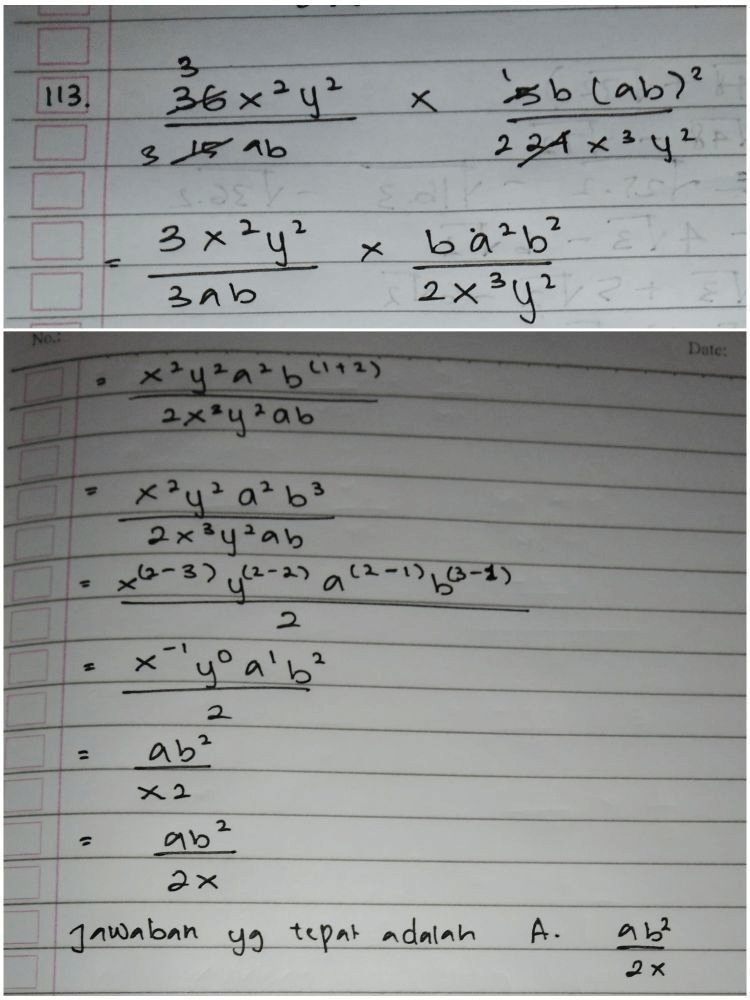 113. 36 x² y² / 15 ab × 5b (ab)² / 24 x³ y²
3 3 1 2
= 3x²y² / 3ab × b a²b² / 2x³y²
No.: Date:
= x²y²a²b⁽¹⁺²⁾ / 2x³y²ab
= x²y² a² b³ / 2x³y²ab
= x⁽²⁻³⁾ y⁽²⁻²⁾ a⁽²⁻¹⁾ b⁽³⁻¹⁾ / 2
= x⁻¹ y⁰ a¹ b² / 2
= ab² / x2
= ab² / 2x
Jawaban yg tepat adalah A. ab² / 2x